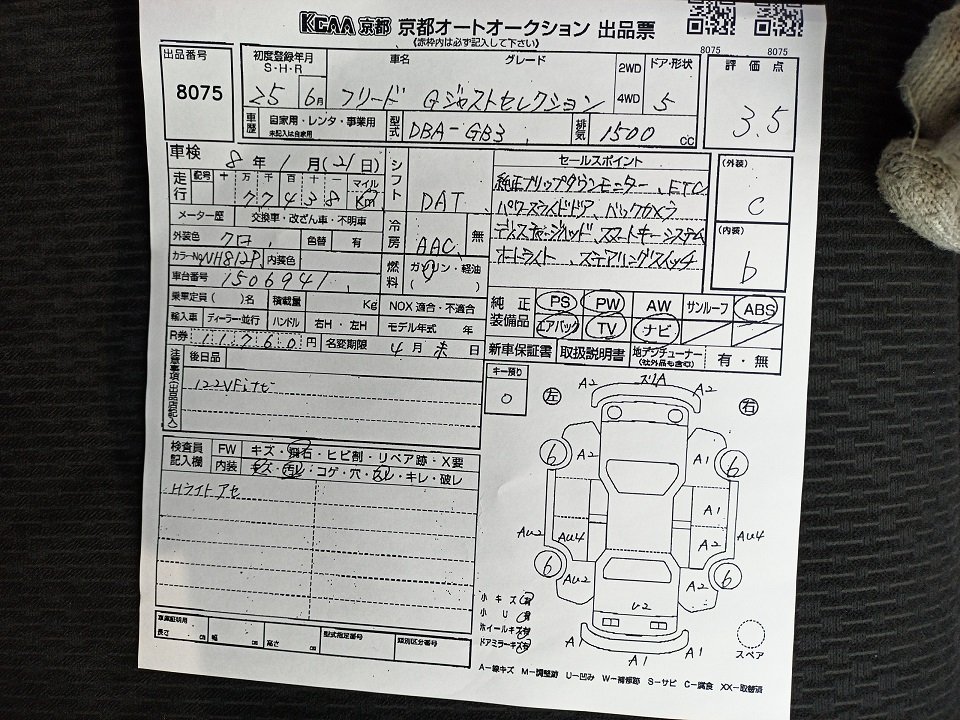 KCAA 京都 京都オートオークション 出品票
(赤枠内は必ず記入して下さい)
8075 8075
出品番号
8075
初度登録年月
S・H・R
車名
グレード
2WD
4WD
ドア・形状
評価点
25 6月 フリード Gジャストセレクション 5
3.5
車歴
自家用・レンタ・事業用
未記入は自家用
型式
DBA-GB3
排気
1500 cc
車検
8年 1月(21日)
シフト
DAT
セールスポイント
純正フリップダウンモニター、ETC
パワースライドドア、バックカメラ
オートライト、ステアリングスイッチ
(外装)
C
(内装)
b
走行
配号 十 万 千 百 十 マイル
77438 Km
メーター歴 交換車・改ざん車・不明車
冷房
AAC
無
外装色 クロ
色替 有
カラーNo NH812P 内装色
燃料
ガソリン・軽油
( )
車台番号 1506941
乗車定員( )名 積載量 Kg NOX 適合・不適合
輸入車 ディーラー・並行 ハンドル 右H・左H モデル年式 年
R券 11760円 名変期限 4月末日
純正装備品
PS PW AW サンルーフ ABS
エアバック TV ナビ
新車保証書 取扱説明書 地デジチューナー(社外品も含む) 有・無
注意事項(出品店記入)
後日品
キー預り
0
検査員記入欄
FW キズ・飛石・ヒビ割・リペア跡・X要
内装 キズ・汚れ・コゲ・穴・凸レ・キレ・破レ
Hライトアセ
左 右
A2 A2
6 A2 A1 6
A1
AU2 AU4 A2 AU4
6 AU2 A2 6
U2
A1 A1 A1
小キズ有
小U有
ホイールキズ有
ドアミラーキズ有
スペア
車庫証明用
長さ cm 幅 cm 高さ cm
型式指定番号
類別区分番号
A－線キズ M－調整跡 U－凹み W－補修跡 S－サビ C－腐食 XX－取替済